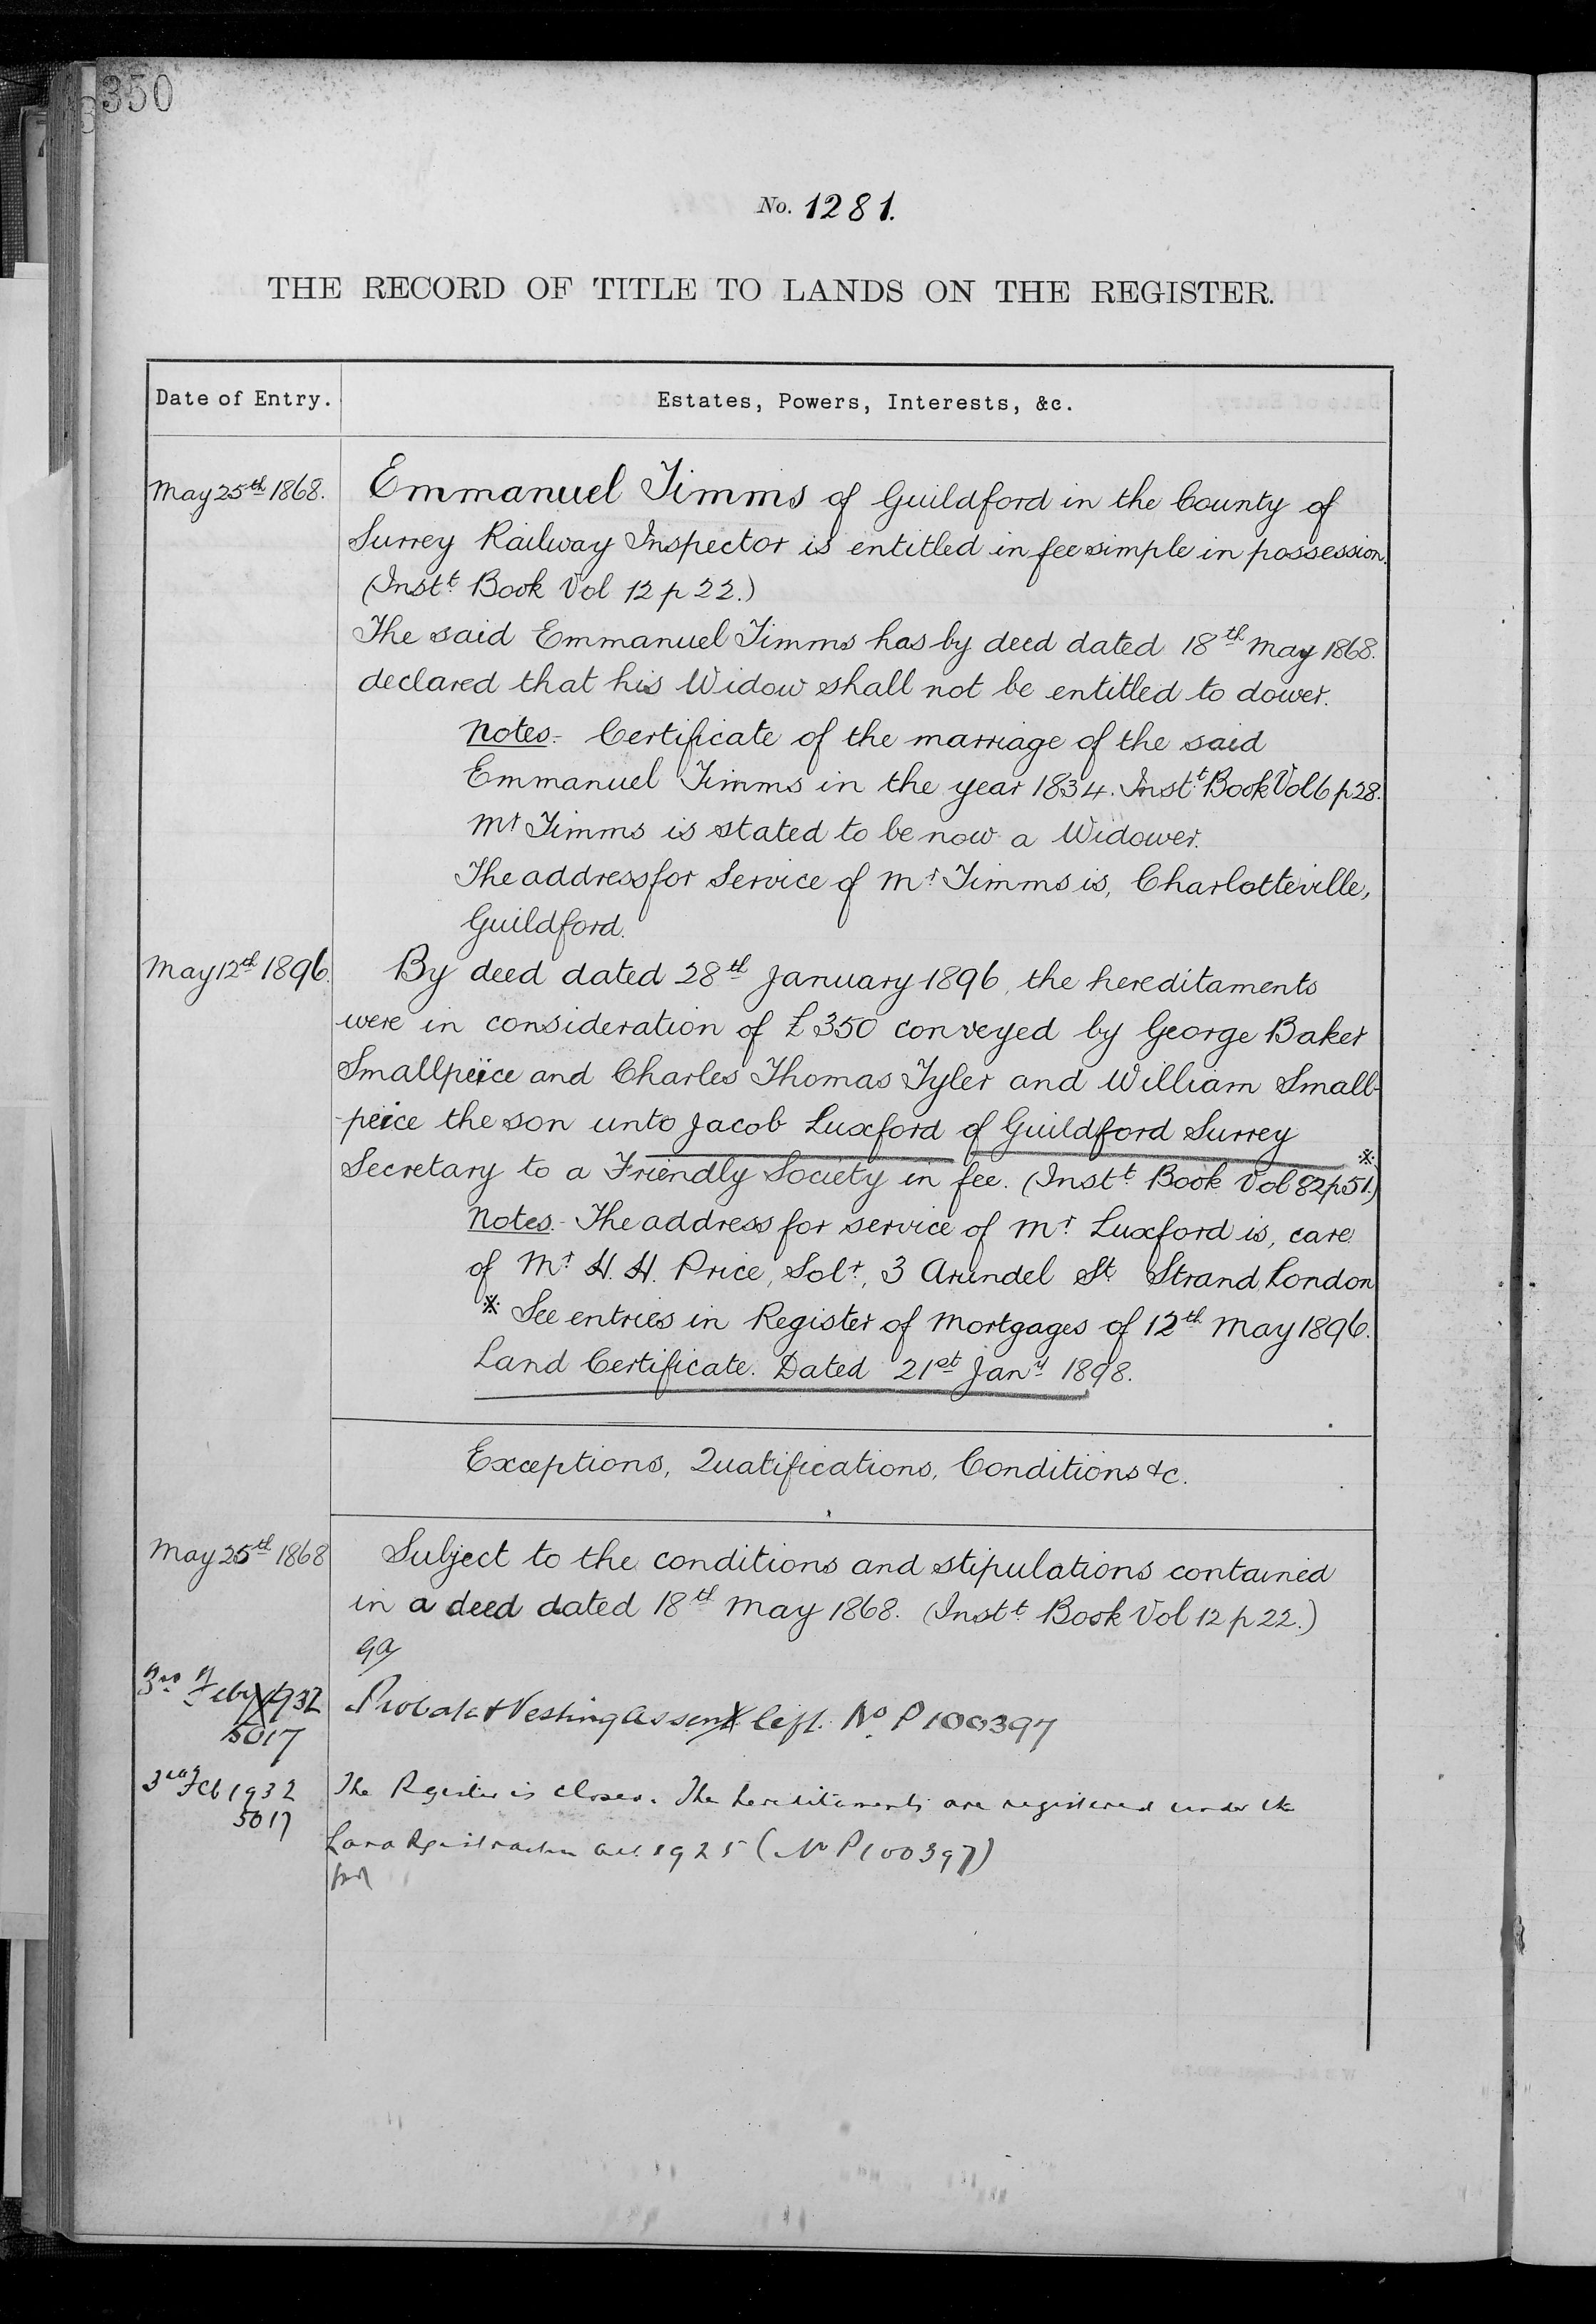 350
No. 1281.
THE RECORD OF TITLE TO LANDS ON THE REGISTER.
Date of Entry.
Estates, Powers, Interests, &c.
May 25th 1868.
Emmanuel Timms of Guildford in the County of
Surrey Railway Inspector is entitled in fee simple in possession.
(Instt. Book Vol 12 p 22.)
The said Emmanuel Timms has by deed dated 18th May 1868.
declared that his Widow shall not be entitled to dower.
Notes:- Certificate of the marriage of the said
Emmanuel Timms in the year 1834. Instt. Book Vol 6 p 28.
Mr Timms is stated to be now a Widower.
The address for Service of Mr. Timms is, Charlotteville,
Guildford.
May 12th 1896.
By deed dated 28th January 1896, the hereditaments
were in consideration of £350 conveyed by George Baker
Smallpeice and Charles Thomas Tyler and William Small-
-peice the son unto Jacob Luxford of Guildford Surrey
Secretary to a Friendly Society in fee. (Instt. Book Vol 82 p 51.) ※
Notes.- The address for service of Mr. Luxford is, care
of Mr. H. H. Price, Solr., 3 Arundel St. Strand, London
※ See entries in Register of Mortgages of 12th May 1896.
Land Certificate. Dated 21st Jany. 1898.
Exceptions, Qualifications, Conditions &c.
May 25th 1868
Subject to the conditions and stipulations contained
in a deed dated 18th May 1868. (Instt. Book Vol 12 p 22.)
3rd Feby 1932
5017
Probate & Vesting Assent left. No. P100397
3rd Feb 1932
5017
The Register is closed. The hereditaments are registered under the
Land Registration Act 1925 (No P100397)